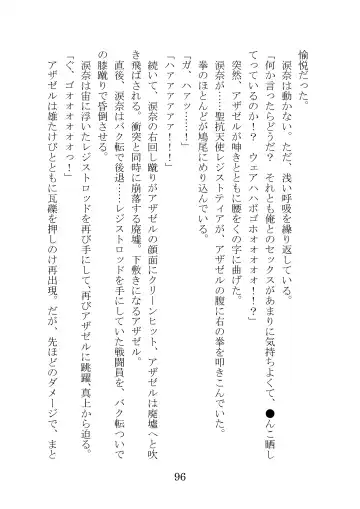 愉悦だった。
　涙奈は動かない。ただ、浅い呼吸を繰り返している。
「何か言ったらどうだ？　それとも俺とのセックスがあまりに気持ちよくて、●んこ晒し
てっているのか！？　ウェアハハボゴホオオオオ！！？」
　突然、アザゼルが呻きとともに腰をくの字に曲げた。
　涙奈が……聖抗天使レジストティアが、アザゼルの腹に右の拳を叩きこんでいた。
拳のほとんどが鳩尾にめり込んでいる。
「ガ、ハァッ……！」
「ハァアアアアァ！！！」
　続いて、涙奈の右回し蹴りがアザゼルの顔面にクリーンヒット、アザゼルは廃墟へと吹
き飛ばされる。衝突と同時に崩落する廃墟。下敷きになるアザゼル。
　直後、涙奈はバク転で後退……レジストロッドを手にしていた戦闘員を、バク転ついで
の膝蹴りで昏倒させる。
　涙奈は宙に浮いたレジストロッドを再び手にして、再びアザゼルに跳躍、真上から迫る。
「ぐ、ゴォオオオオオっ！」
　アザゼルは雄たけびとともに瓦礫を押しのけ再出現。だが、先ほどのダメージで、まと
96